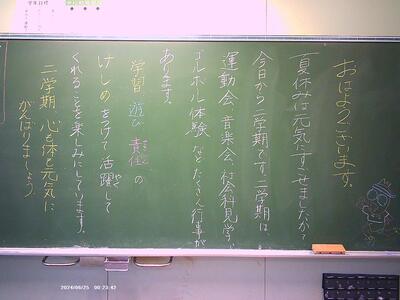 おはようございます。
夏休みは元気にすごせましたか？
今日から二学期です。二学期は、
運動会、音楽会、社会科見学、
ゴールボール体験 など たくさん行事が
あります。
学習 遊び の
けじめ をつけて 活躍して
くれることを楽しみにしています。
二学期 心も体も元気に
がんばりましょう。
2024/08/25 00:23:42